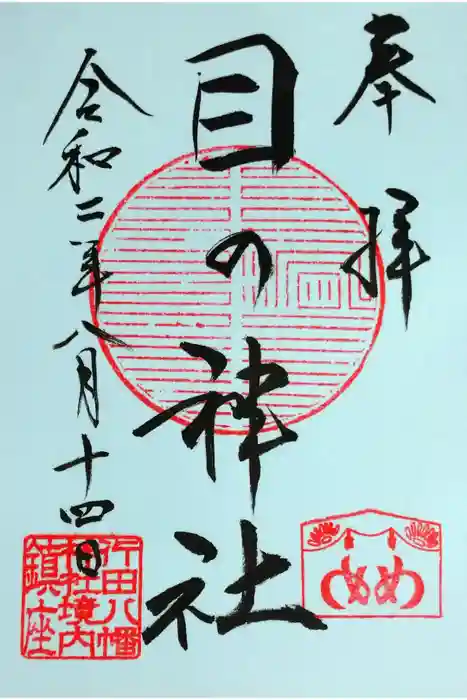 奉拝
目の神社
令和二年八月十四日
行田八幡
神社境内
鎮座
めめ